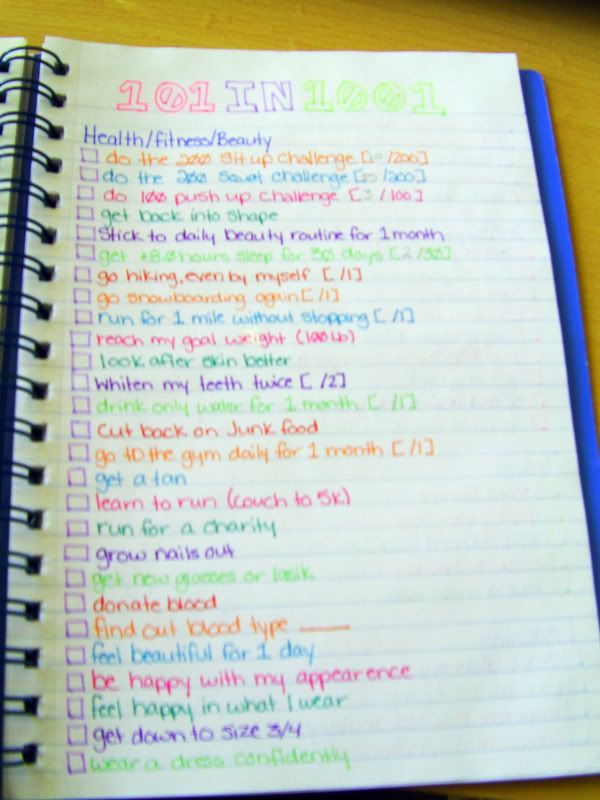 101 IN 1001
Health/fitness/Beauty
do the 200 sit up challenge [ /200]
do the 200 squat challenge [ /200]
do 100 push up challenge [3 /100]
get back into shape
Stick to daily beauty routine for 1 month
get +8.0 hours sleep for 30 days [2 /30]
go hiking, even by myself [ /1]
go snowboarding again [ /1]
run for 1 mile without stopping [ /1]
reach my goal weight (100lb)
look after skin better
whiten my teeth twice [ /2]
drink only water for 1 month [ /1]
cut back on Junk food
go to the gym daily for 1 month [ /1]
get a tan
learn to run (couch to 5k)
run for a charity
grow nails out
get new glasses or lasik
donate blood
find out blood type ____
feel beautiful for 1 day
be happy with my appearence
feel happy in what I wear
get down to size 3/4
wear a dress confidently